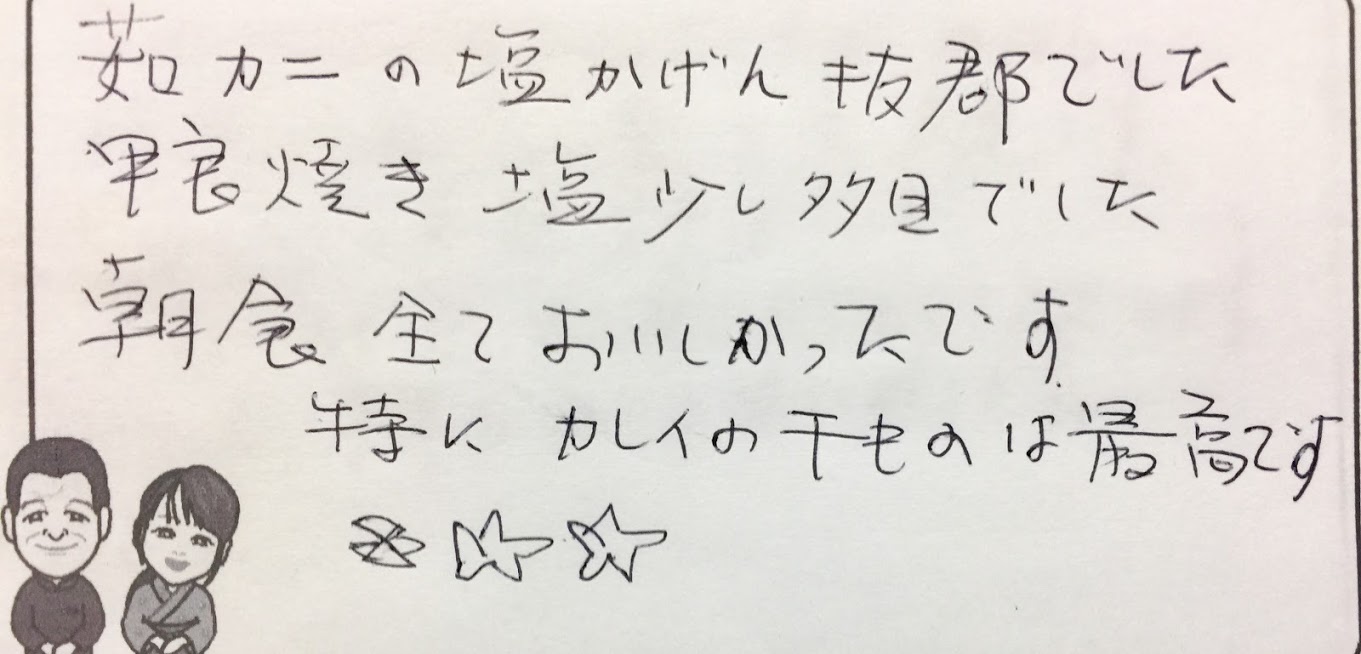 茹カニの塩かげん抜郡でした
甲良焼き塩少し多目でした
朝食全ておいしかったです
特にカレイの干ものは最高です